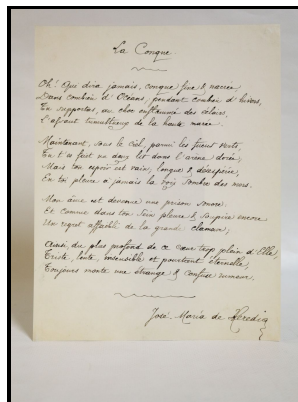 La Conque
Oh! Qui dira jamais, conque fine & nacrée,
Dans combien d'Océans, pendant combien d'hivers,
Tu supportas, au choc
L'assaut tumultueux de la haute marée.
Maintenant, sous le Ciel, parmi les fucus verts,
Tu t'es fait un doux lit dans l'arène dorée;
Mais ton espoir est vain, longue & désespérée,
En toi pleure à jamais la voix sombre des mers.
Mon âme est devenue une prison sonore:
Et comme dans ton sein pleure & soupire encore
Un regret affaibli de la grande clameur;
Ainsi, du plus profond de ce cœur trop plain d'Elle,
Triste, lente, insensible et pourtant éternelle,
Toujours monte une étrange & confuse rumeur.
José-Maria de Heredia